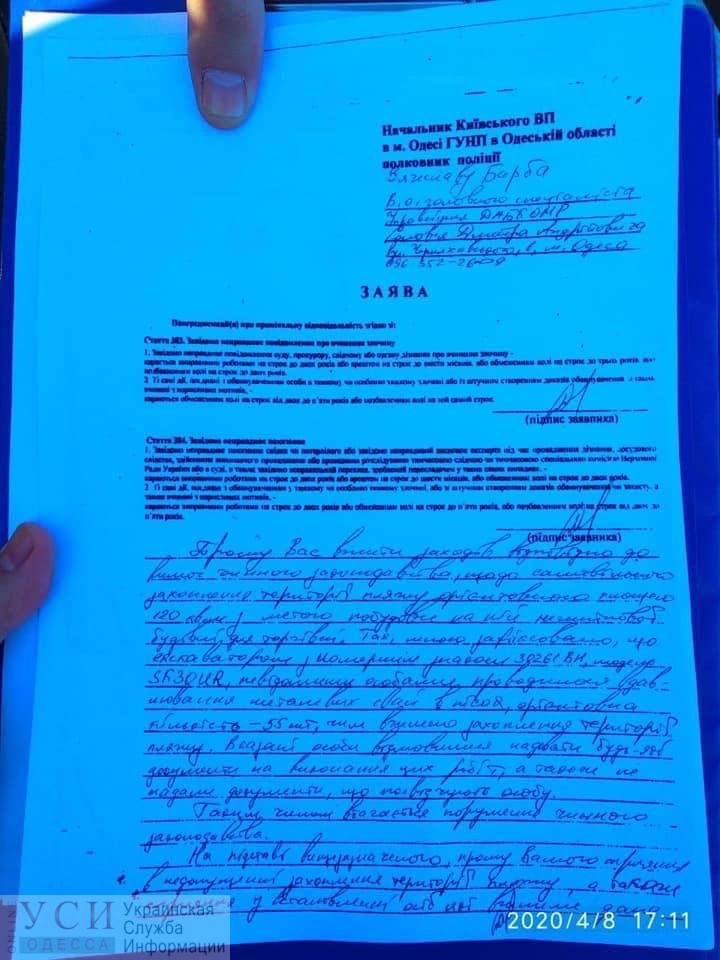 Начальник Київського ВП
в м. Одесі ГУНП в Одеській області
полковник поліції
Вячеславу Барба
В.о. головного спеціаліста
Управління
Дмитра Андрійовича
м. Одеса
096-352-26-09
ЗАЯВА
Попереджений(а) про кримінальну відповідальність згідно зі:
Стаття 383. Завідомо неправдиве повідомлення про вчинення злочину
1. Завідомо неправдиве повідомлення суду, прокурору, слідчому або органу дізнання про вчинення злочину -
карається виправними роботами на строк до двох років або арештом на строк до шести місяців, або обмеженням волі на строк до трьох років, або
позбавленням волі на строк до двох років.
2 Ті самі дії, поєднані з обвинуваченням особи в тяжкому чи особливо тяжкому злочині або із штучним створенням доказів обвинувачення, а також
вчинені з корисливих мотивів, -
караються обмеженням волі на строк від двох до п'яти років або позбавленням волі на той самий строк.
(підпис заявника)
Стаття 384. Завідомо неправдиве показання
1. Завідомо неправдиве показання свідка чи потерпілого або завідомо неправдивий висновок експерта під час провадження дізнання, досудового
слідства, здійснення виконавчого провадження або проведення розслідування тимчасовою слідчою чи тимчасовою спеціальною комісією Верховної
Ради України або в суді, а також завідомо неправильний переклад, зроблений перекладачем у таких самих випадках, -
карається виправними роботами на строк до двох років або арештом на строк до шести місяців, або обмеженням волі на строк до двох років.
2 Ті самі дії, поєднані з обвинуваченням у тяжкому чи особливо тяжкому злочині, або зі штучним створенням доказів обвинувачення чи захисту, а
також вчинені з корисливих мотивів, -
караються виправними роботами на строк до двох років або обмеженням волі на строк до п'яти років, або позбавленням волі на строк від двох до
п'яти років.
(підпис заявника)
Прошу Вас вжити заходів відповідно до
вимог чинного законодавства, щодо самовільного
захоплення території пляжу орієнтовною площею
120 кв.м. з метою побудови на ній
будівлі для торгівлі. Так, мною зафіксовано, що
екскаватором з номерним знаком 39261 ВН, модель
невідомими особами, проводилося
металевих свай в пісок, орієнтовна
кількість - 55 шт, чим вчинено захоплення території
пляжу. Вказані особи відмовилися надавати будь-які
документи на виконання цих робіт, а також не
надали документи, що посвідчують особу.
Таким чином вбачається порушення чинного
законодавства.
На підставі вищезазначеного, прошу Вашого сприяння
в недопущенні захоплення території пляжу, а також
сприяння у встановленні осіб які
2020/4/8 17:11
ONLINE
УСИ
ОДЕССА
Украинская
Служба
Информации